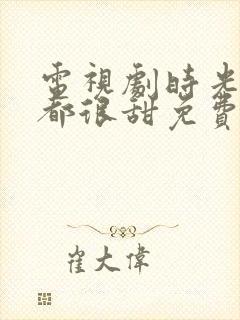 電視劇時光
都很甜免費
崔大偉